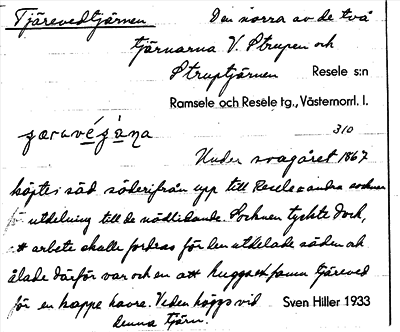 Tjärevedtjärnen
Den norra av de två
tjärnarna V. Strupen och
Struptjärnen Resele s:n
Ramsele och Resele tg., Västernorrl. l.
310
Under svagåret 1867
köptes säd söderifrån upp till Resele o andra socknar
för utdelning till de nödlidande. Socknen tyckte dock,
att arbete skulle fordras för den utdelade säden och
ålade därför var och en att hugga en famn tjäreved
för en kappe havre. Veden höggs vid
denna tjärn.
Sven Hiller 1933